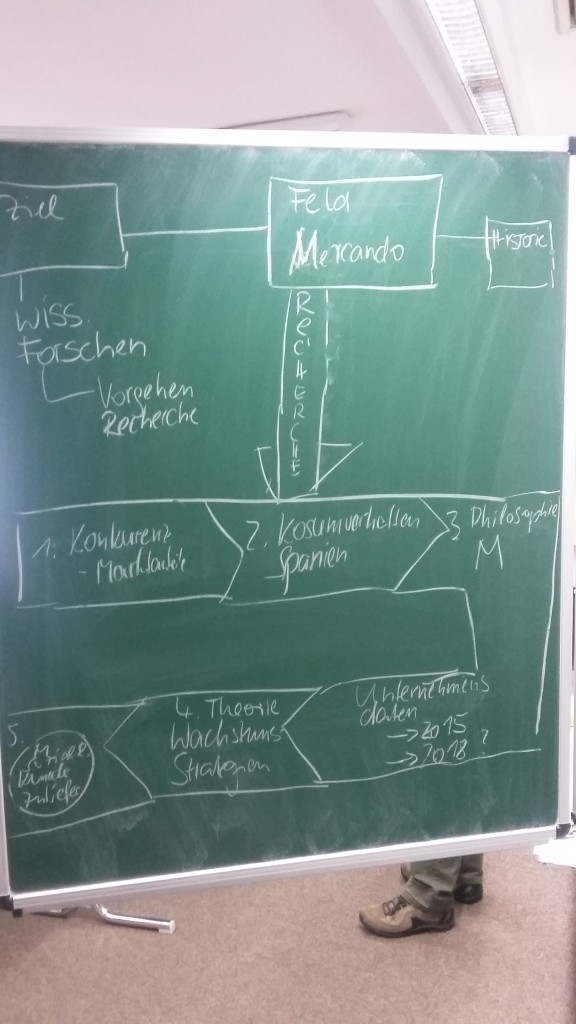 Ziel
Feld
Mercando
Historie
Wiss.
Forschen
Vorgehen
Recherche
RECHERCHE
1. Konkurenz
- Marktanteile
2. Kosumverhalten
Spanien
3 Philosophie
M
Unternehmens
daten
→ 2015
→ 2018 ?
4. Theorie
Wachstums
Strategien
5.
Zuliefer